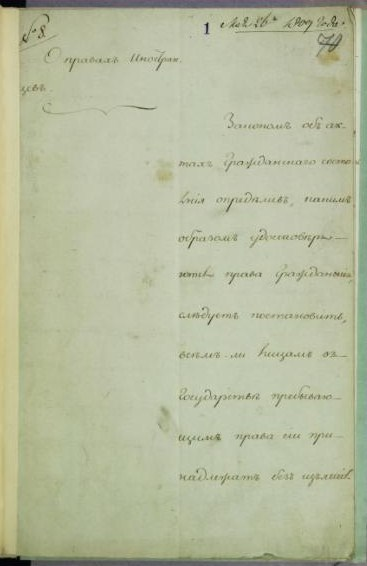 № 8.
1
Мая 26го 1809 года.
70
О правахъ Иностран
цевъ.
Закономъ объ ак-
тахъ Гражданскаго состоя
нія опредѣливъ, какимъ
образомъ удостовѣря-
ются права Гражданскія,
слѣдуетъ постановить,
всѣмъ-ли лицамъ въ
Государствѣ пребываю-
щимъ права сіи при-
надлежатъ безъ изъятія.